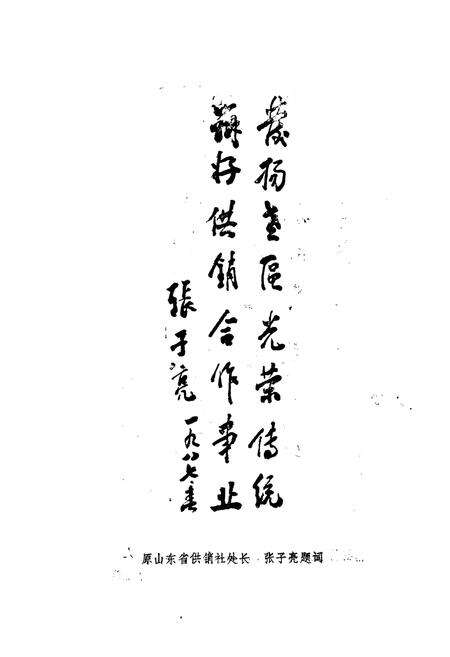 發扬老區光荣传统
辦好供销合作事业
張子亮
一九八七春
原山东省供销社处长 张子亮题词